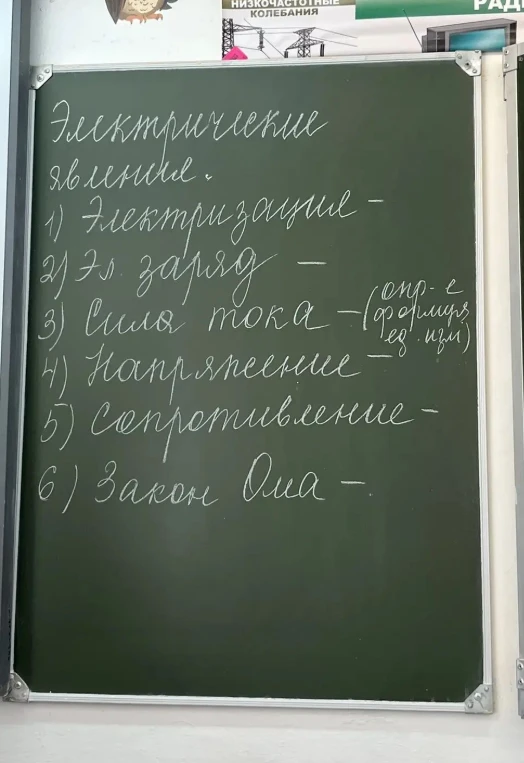 НИЗКОЧАСТОТНЫЕ
КОЛЕБАНИЯ
Электрические
явления.
1) Электризация –
2) Эл. заряд –
3) Сила тока – (опр-е
формула
ед. изм)
4) Напряжение –
5) Сопротивление –
6) Закон Ома –